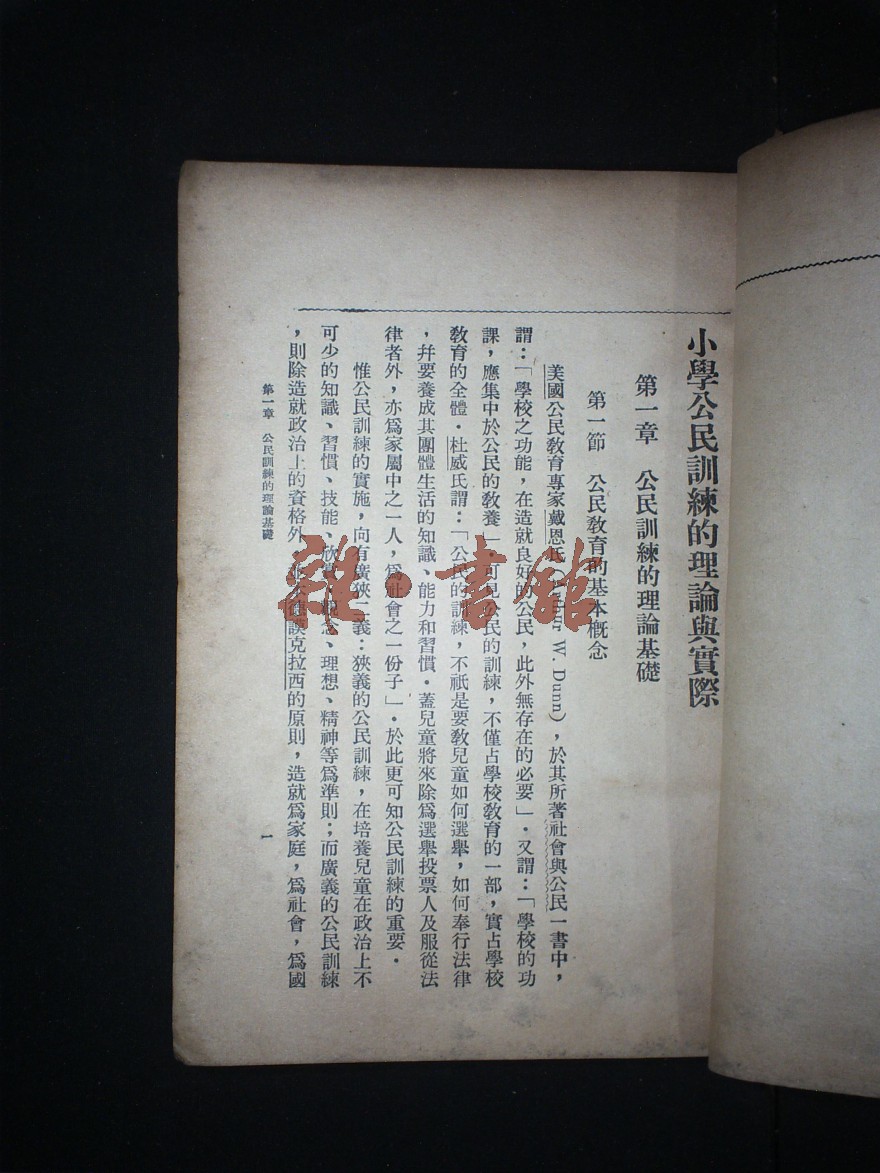 小學公民訓練的理論與實際
第一章 公民訓練的理論基礎
第一節 公民敎育的基本槪念
美國公民敎育專家戴恩氏 W. Dunn），於其所著社會與公民一書中，
謂：「學校之功能，在造就良好的公民，此外無存在的必要」．又謂：「學校的功
課，應集中於公民的敎養」．可見公民的訓練，不僅占學校敎育的一部，實占學校
敎育的全體．杜威氏謂：「公民的訓練，不祇是要敎兒童如何選舉，如何奉行法律
，幷要養成其團體生活的知識、能力和習慣．蓋兒童將來除爲選舉投票人及服從法
律者外，亦爲家屬中之一人，爲社會之一份子」．於此更可知公民訓練的重要．
惟公民訓練的實施，向有廣狹二義：狹義的公民訓練，在培養兒童在政治上不
可少的知識、習慣、技能、欣賞、觀念、理想、精神等爲準則；而廣義的公民訓練
，則除造就政治上的資格外，德謨克拉西的原則，造就爲家庭，爲社會，爲國
第一章 公民訓練的理論基礎
一
雜·書館